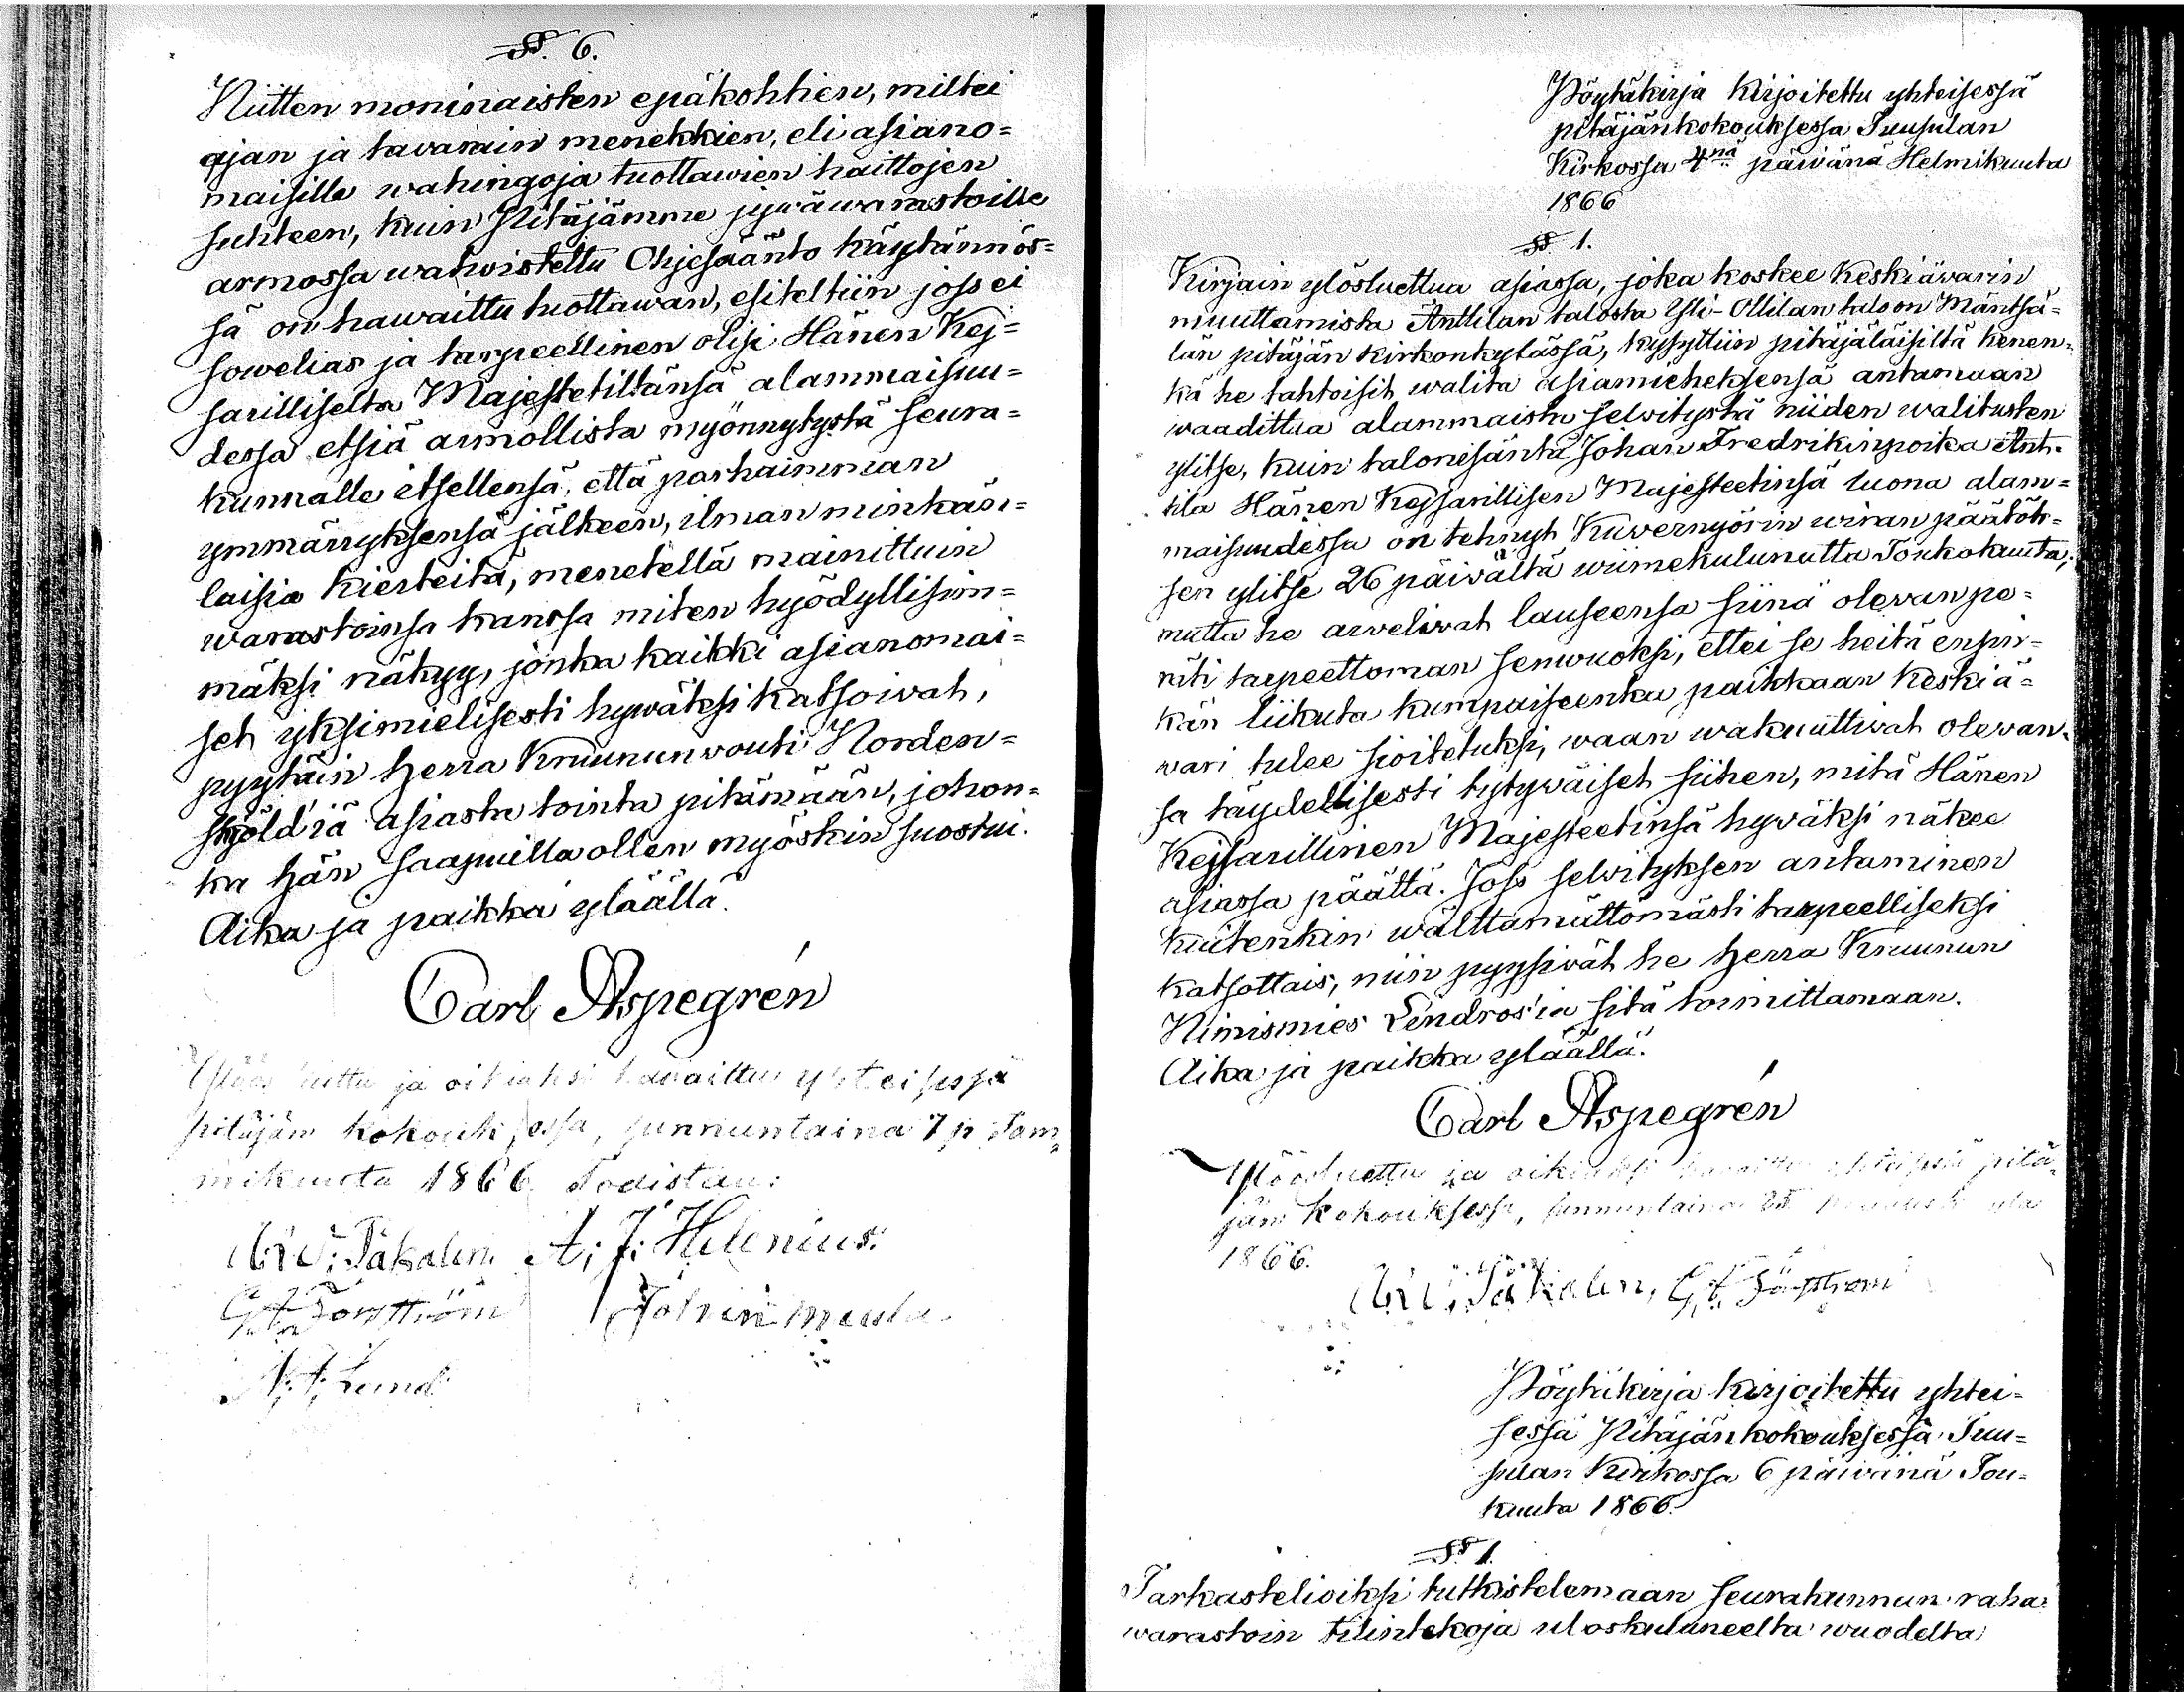 §§. 6.
Niitten moninaisten epäkohtien, miltei
ajan ja tavarain menekkien, eli asiano=
maisille wahingoja tuottawien haittojen
suhteen, kuin Pitäjämme jywäwarastoille
armossa wahwistettu Ohjesääntö käytännös=
sä on hawaittu tuottawan, esiteltiin joss ei
sowelias ja tarpeellinen olisi Hänen Kej=
sarilliselta Majestetiltänsä alammaisuu=
dessa etsiä armollista myönnytystä seura=
kunnalle itsellensä, että parhaimman
ymmärryksensä jälkeen, ilman minkään=
laisia kierteitä, menetellä mainittuin
warastoinsa kanssa miten hyödyllisim=
mäksi näkyy, jonka kaikki asianomai=
set yksimielisesti hywäksi katsoivat,
pyytäin herra Kruununwouti Norden=
skjöld'iä asiasta tointa pitämään, johon=
ka hän saapuilla ollen myöskin suostui.
Aika ja paikka yläällä.
Carl Aspegrén
Ylösluettu ja oikiaksi havaittu yhteisessä
pitäjän kokouksessa, sunnuntaina 7 p Tam=
mikuuta 1866 Todistan:
A. J. Helenius.
G. A. Forsström
Lund
Pöytäkirja kirjoitettu yhteisessä
pitäjänkokouksessa Tuusulan
Kirkossa 4nä päiwänä Helmikuuta
1866
§§ 1.
Kirjain ylösluettua asiassa, joka koskee Keskiäwarin
muuttamista Anttilan talosta Yli-Ollilan taloon Mäntsä=
län pitäjän kirkonkylässä, kysyttiin pitäjäläisiltä kenen=
kä he tahtoisit walita asiamieheksensä antamaan
waadittua alammaista selwitystä niiden walitusten
ylitse, kuin talonisäntä Johan Fredrikinpoika Ant=
tila Hänen Kejsarillisen Majesteetinsä luona alam=
maisuudessa on tehnyt Kuwernyörin wiran päätök=
sen ylitse 26 päiwältä wiimekulunutta Toukokuuta;
mutta he arvelivat lauseensa siinä olevan pe=
räti tarpeettoman senwuoksi, ettei se heitä enpin=
kän liikuta kumpaiseenka paikkaan Keskiä=
wari tulee sioitetuksi, waan wakuuttivat olevan=
sa täydellisesti tytywäiset siihen, mitä Hänen
Kejsarillinen Majesteetinsä hywäksi näkee
asiassa päättä. Joss selwityksen antaminen
kuitenkin wälttämättömästi tarpeelliseksi
katsottais, niin pyysivät he herra Kruunun
Nimismies Lindros'ia sitä toimittamaan.
Aika ja paikka yläällä.
Carl Aspegrén
Ylösluettu ja oikiaksi havaittu yhteisessä pitä=
jän kokouksessa, sunnuntaina 25
1866.
G. A. Forsström
Pöytäkirja kirjoitettu yhtei=
sessä Pitäjänkokouksessa Tuu=
sulan Kirkossa 6 päiwänä Tou=
kuuta 1866.
§§ 1.
Tarkastelioiksi tutkistelemaan seurakunnan raha=
warastoin tilintekoja uloskuluneelta wuodelta